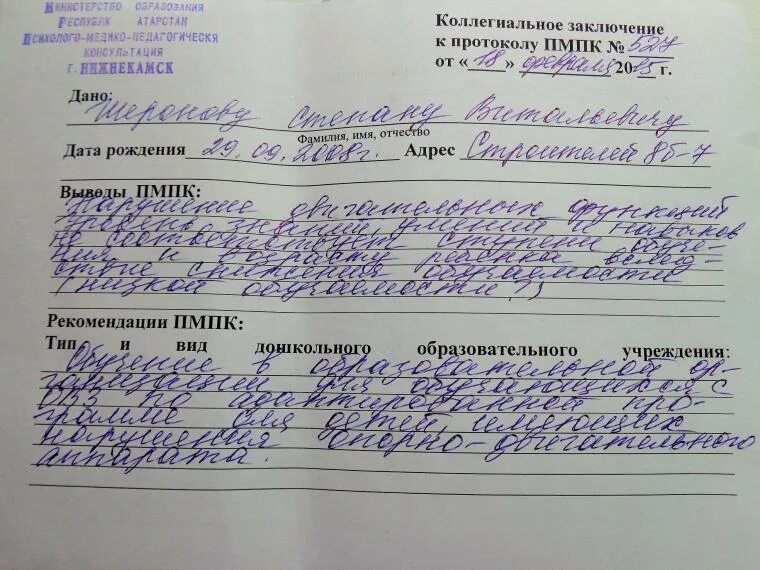 Министерство образования
Республ Атарстан
Психолого-медико-педагогическя
консультация
г. Нижнекамск
Коллегиальное заключение
к протоколу ПМПК № 527
от « 18 » февраля 2015 г.
Дано: Широкову Степану Витальевичу
Фамилия, имя, отчество
Дата рождения 29.09.2008г. Адрес Строителей 8б-7
Выводы ПМПК:
Нарушение двигательных функций
уровень знаний, умений и навыков
не соответствует ступени обуче-
ния и возрасту ребёнка вслед-
ствие снижения обучаемости
(низкой обучаемости?)
Рекомендации ПМПК:
Тип и вид дошкольного образовательного учреждения:
Обучение в образовательной ор-
ганизации для обучающихся с
ОВЗ по адаптированной про-
грамме для детей, имеющих
нарушения опорно-двигательного
аппарата.